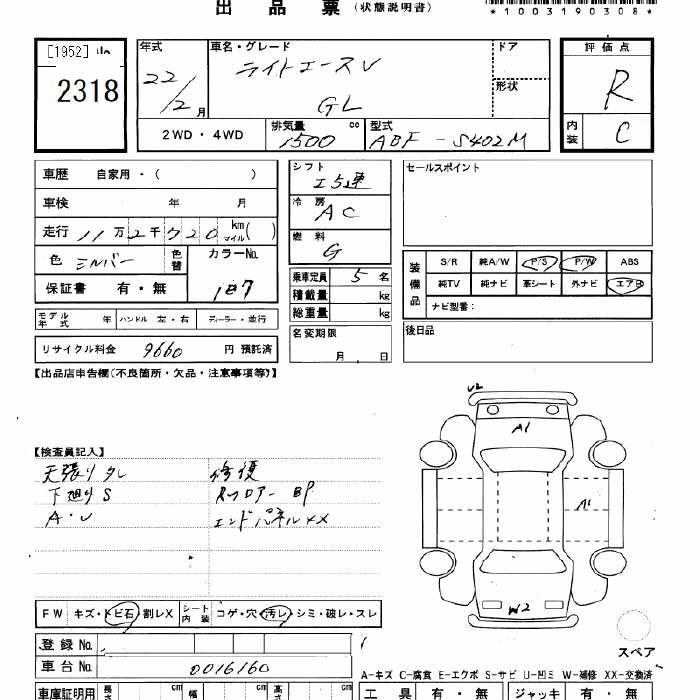 出品票 (状態説明書)
*1003190308*
[1952] 山
2318
年式 22/2月
車名・グレード ライトエースV
GL
ドア
形状
2WD・4WD
排気量 1500 cc
型式 ABF-S402M
評価点 R
内装 C
車歴 自家用・( )
車検 年 月
走行 11万2千720 km マイル( )
色 シルバー 色替
カラーNo. 1E7
保証書 有・無
モデル年式 年 ハンドル 左・右 ディーラー・並行
リサイクル料金 9660 円 預託済
シフト I5速
冷房 AC
燃料 G
乗車定員 5名
積載量 kg
総重量 kg
名変期限
月 日
セールスポイント
装備品
S/R 純A/W P/S P/W ABS
純TV 純ナビ 革シート 外ナビ エアB
ナビ型番:
後日品
【出品店申告欄(不良箇所・欠品・注意事項等)】
【検査員記入】
天張りタレ 修復
下廻りS Rフロアー BP
A・U エンドパネルXX
U2
A1
A1
W2
スペア
FW キズ・トビ石・割レX シート内装 コゲ・穴・汚レ・シミ・破レ・スレ
登録No.
車台No. 0016160
A-キズ C-腐食 E-エクボ S-サビ U-凹ミ W-補修 XX-交換済
車庫証明用 長さ cm 幅 cm 高さ cm
工具 有・無 ジャッキ 有・無